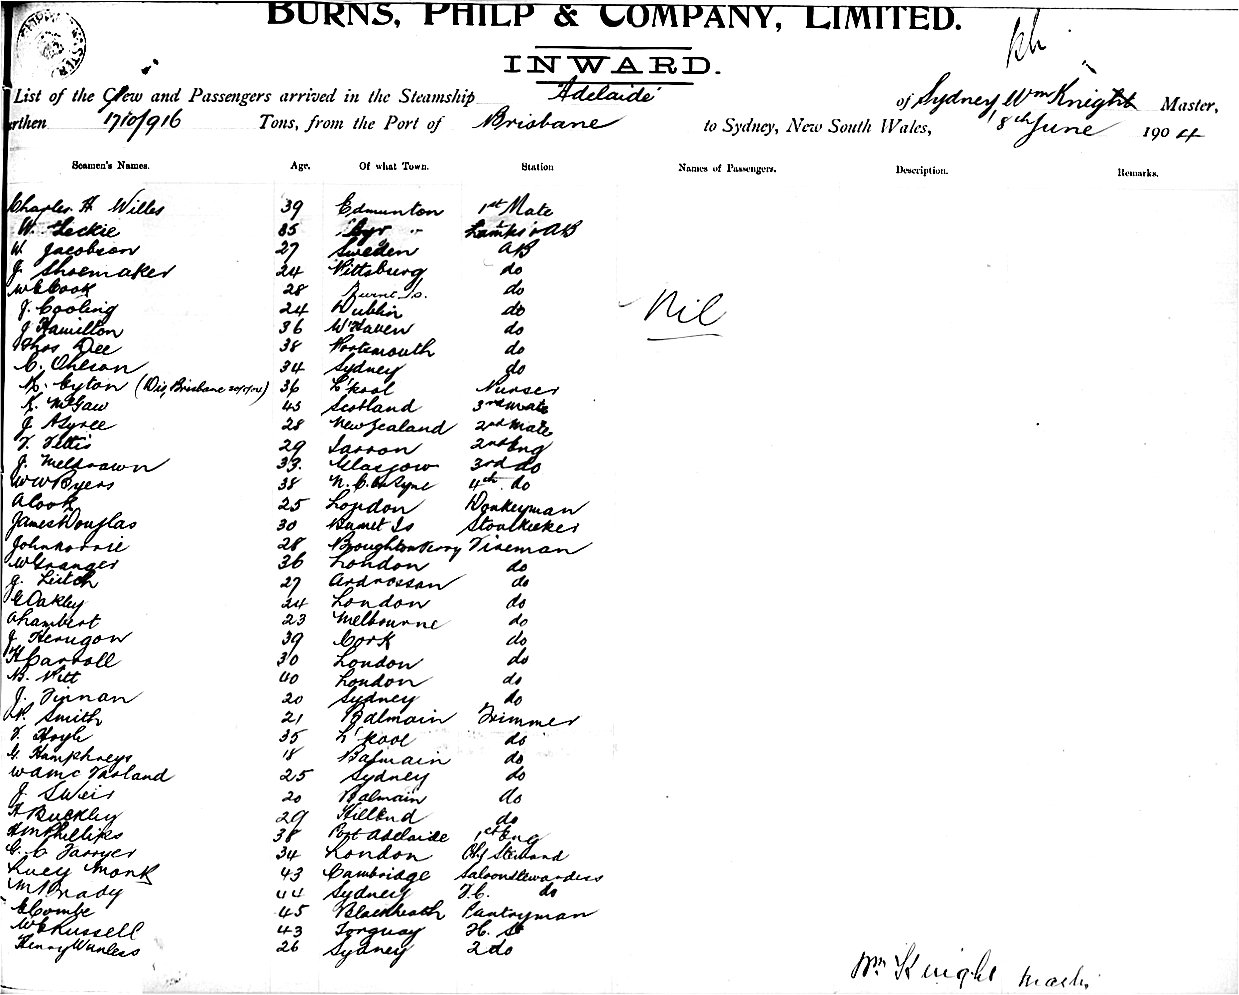 BURNS, PHILP & COMPANY, LIMITED.
INWARD.
List of the Crew and Passengers arrived in the Steamship Adelaide of Sydney, Wm Knight Master,
rthen 1710/916 Tons, from the Port of Brisbane to Sydney, New South Wales, 8th June 1904
Seamen's Names. Age. Of what Town. Station Names of Passengers. Description. Remarks.
Charles H Willes 39 Edmunton 1st Mate
W. Leckie 35 Lamps & AB
W. Jacobson 27 Sweden AB
J. Shoemaker 24 Pittsburg do
W E Cook 28 do
J. Cooling 24 Dublin do
Nil
J Hamilton 36 W'Haven do
Thos Dee 38 Portsmouth do
C. Ohlson 34 Sydney do
Cyton (Dis, Brisbane 36 L'pool
K. McGaw 45 Scotland 3rd Mate
J. 28 New Zealand 2nd Mate
T. 29 Jarrow 2nd Eng
J. Meldrawn 33 Glasgow 3rd do
W W Byers 38 N. C. on Tyne 4th do
A Cook 25 London Donkeyman
James Douglas 30 Burnet Is
John Norrie 28 Broughton Ferry Fireman
W Granger 36 London do
J. Leitch 27 Ardrossan do
E Oakley 24 London do
A Lambert 23 Melbourne do
J. 39 Cork do
H Carroll 30 London do
N. Pitt 40 London do
J. Finnan 20 Sydney do
P. Smith 21 Balmain Trimmer
T. Hoyle 35 L'pool do
G. Humphreys 18 Balmain do
25 Sydney do
J. S Weir 20 Balmain do
H Buckley 29 Hillend do
H M Phillips 38 Port Adelaide 1st Eng
G. C Farryer 34 London Chf Steward
Lucy Monk 43 Cambridge Saloon stewardess
M Brady 44 Sydney F. C. do
E Combe 45 Blackheath Pantryman
W E Russell 43 Torquay
Henry Wanless 26 Sydney 2 do
Wm Knight